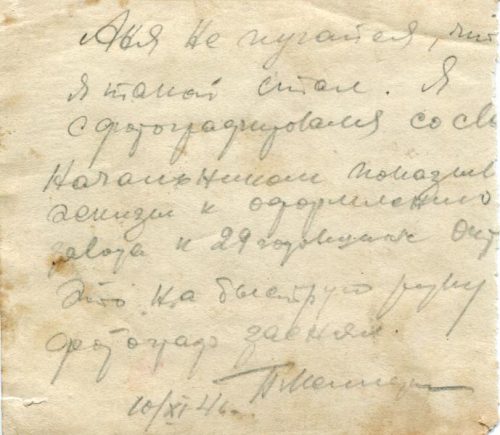 Аня не пугайся, что
я такой стал. Я
сфотографировался со св
начальником показыв
эскизы к оформлению
завода к 29 годовщине Окт
Это на быструю руку
фотограф заснял.
10/XI 46 г.